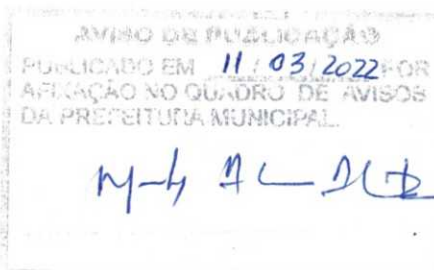 AVISO DE PUBLICAÇÃO
PUBLICADO EM 11/03/2022 POR
AFIXAÇÃO NO QUADRO DE AVISOS
DA PREFEITURA MUNICIPAL.